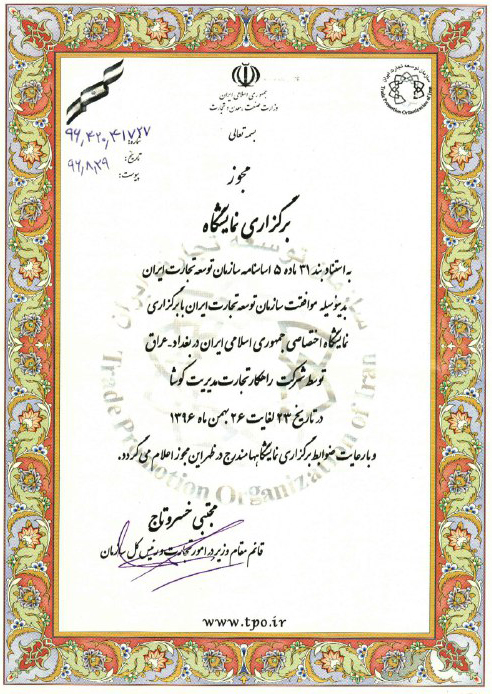 جمهوری اسلامی ایران
وزارت صنعت، معدن و تجارت
سازمان توسعه تجارت ایران
Trade Promotion Organization of Iran
بسمه تعالی
شماره: ۹۶,۴۲۰,۴۱۷۲۷
تاریخ: ۹۶,۸,۲۹
پیوست:
مجوز
برگزاری نمایشگاه
به استناد بند ۳۱ ماده ۵ اساسنامه سازمان توسعه تجارت ایران
بدینوسیله موافقت سازمان توسعه تجارت ایران با برگزاری
نمایشگاه اختصاصی جمهوری اسلامی ایران در بغداد-عراق
توسط شرکت راهکار تجارت مدیریت کوشا
در تاریخ ۲۳ لغایت ۲۶ بهمن ماه ۱۳۹۶
و با رعایت ضوابط برگزاری نمایشگاهها مندرج در ظهر این مجوز اعلام می گردد.
سازمان توسعه تجارت ایران
Trade Promotion Organization of Iran
مجتبی خسروتاج
قائم مقام وزیر در امور تجارت و رئیس کل سازمان
www.tpo.ir